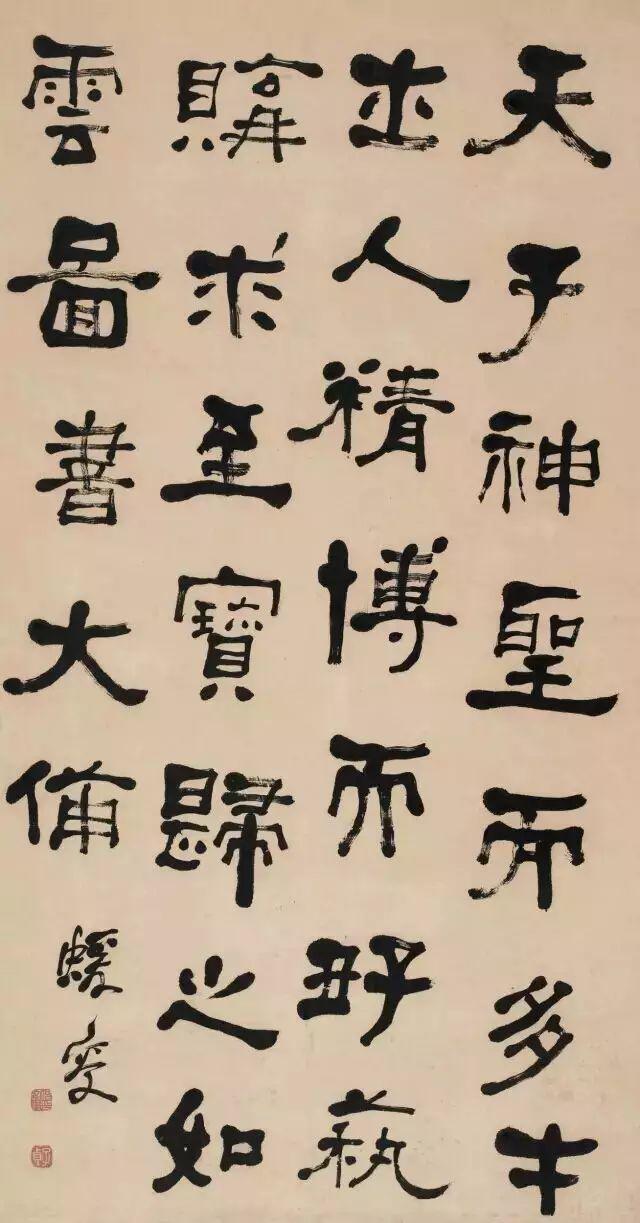 天子神聖而多才
出人精博而好蓺
購求至寶歸之如
雲圖書大備
蝯叟
子貞